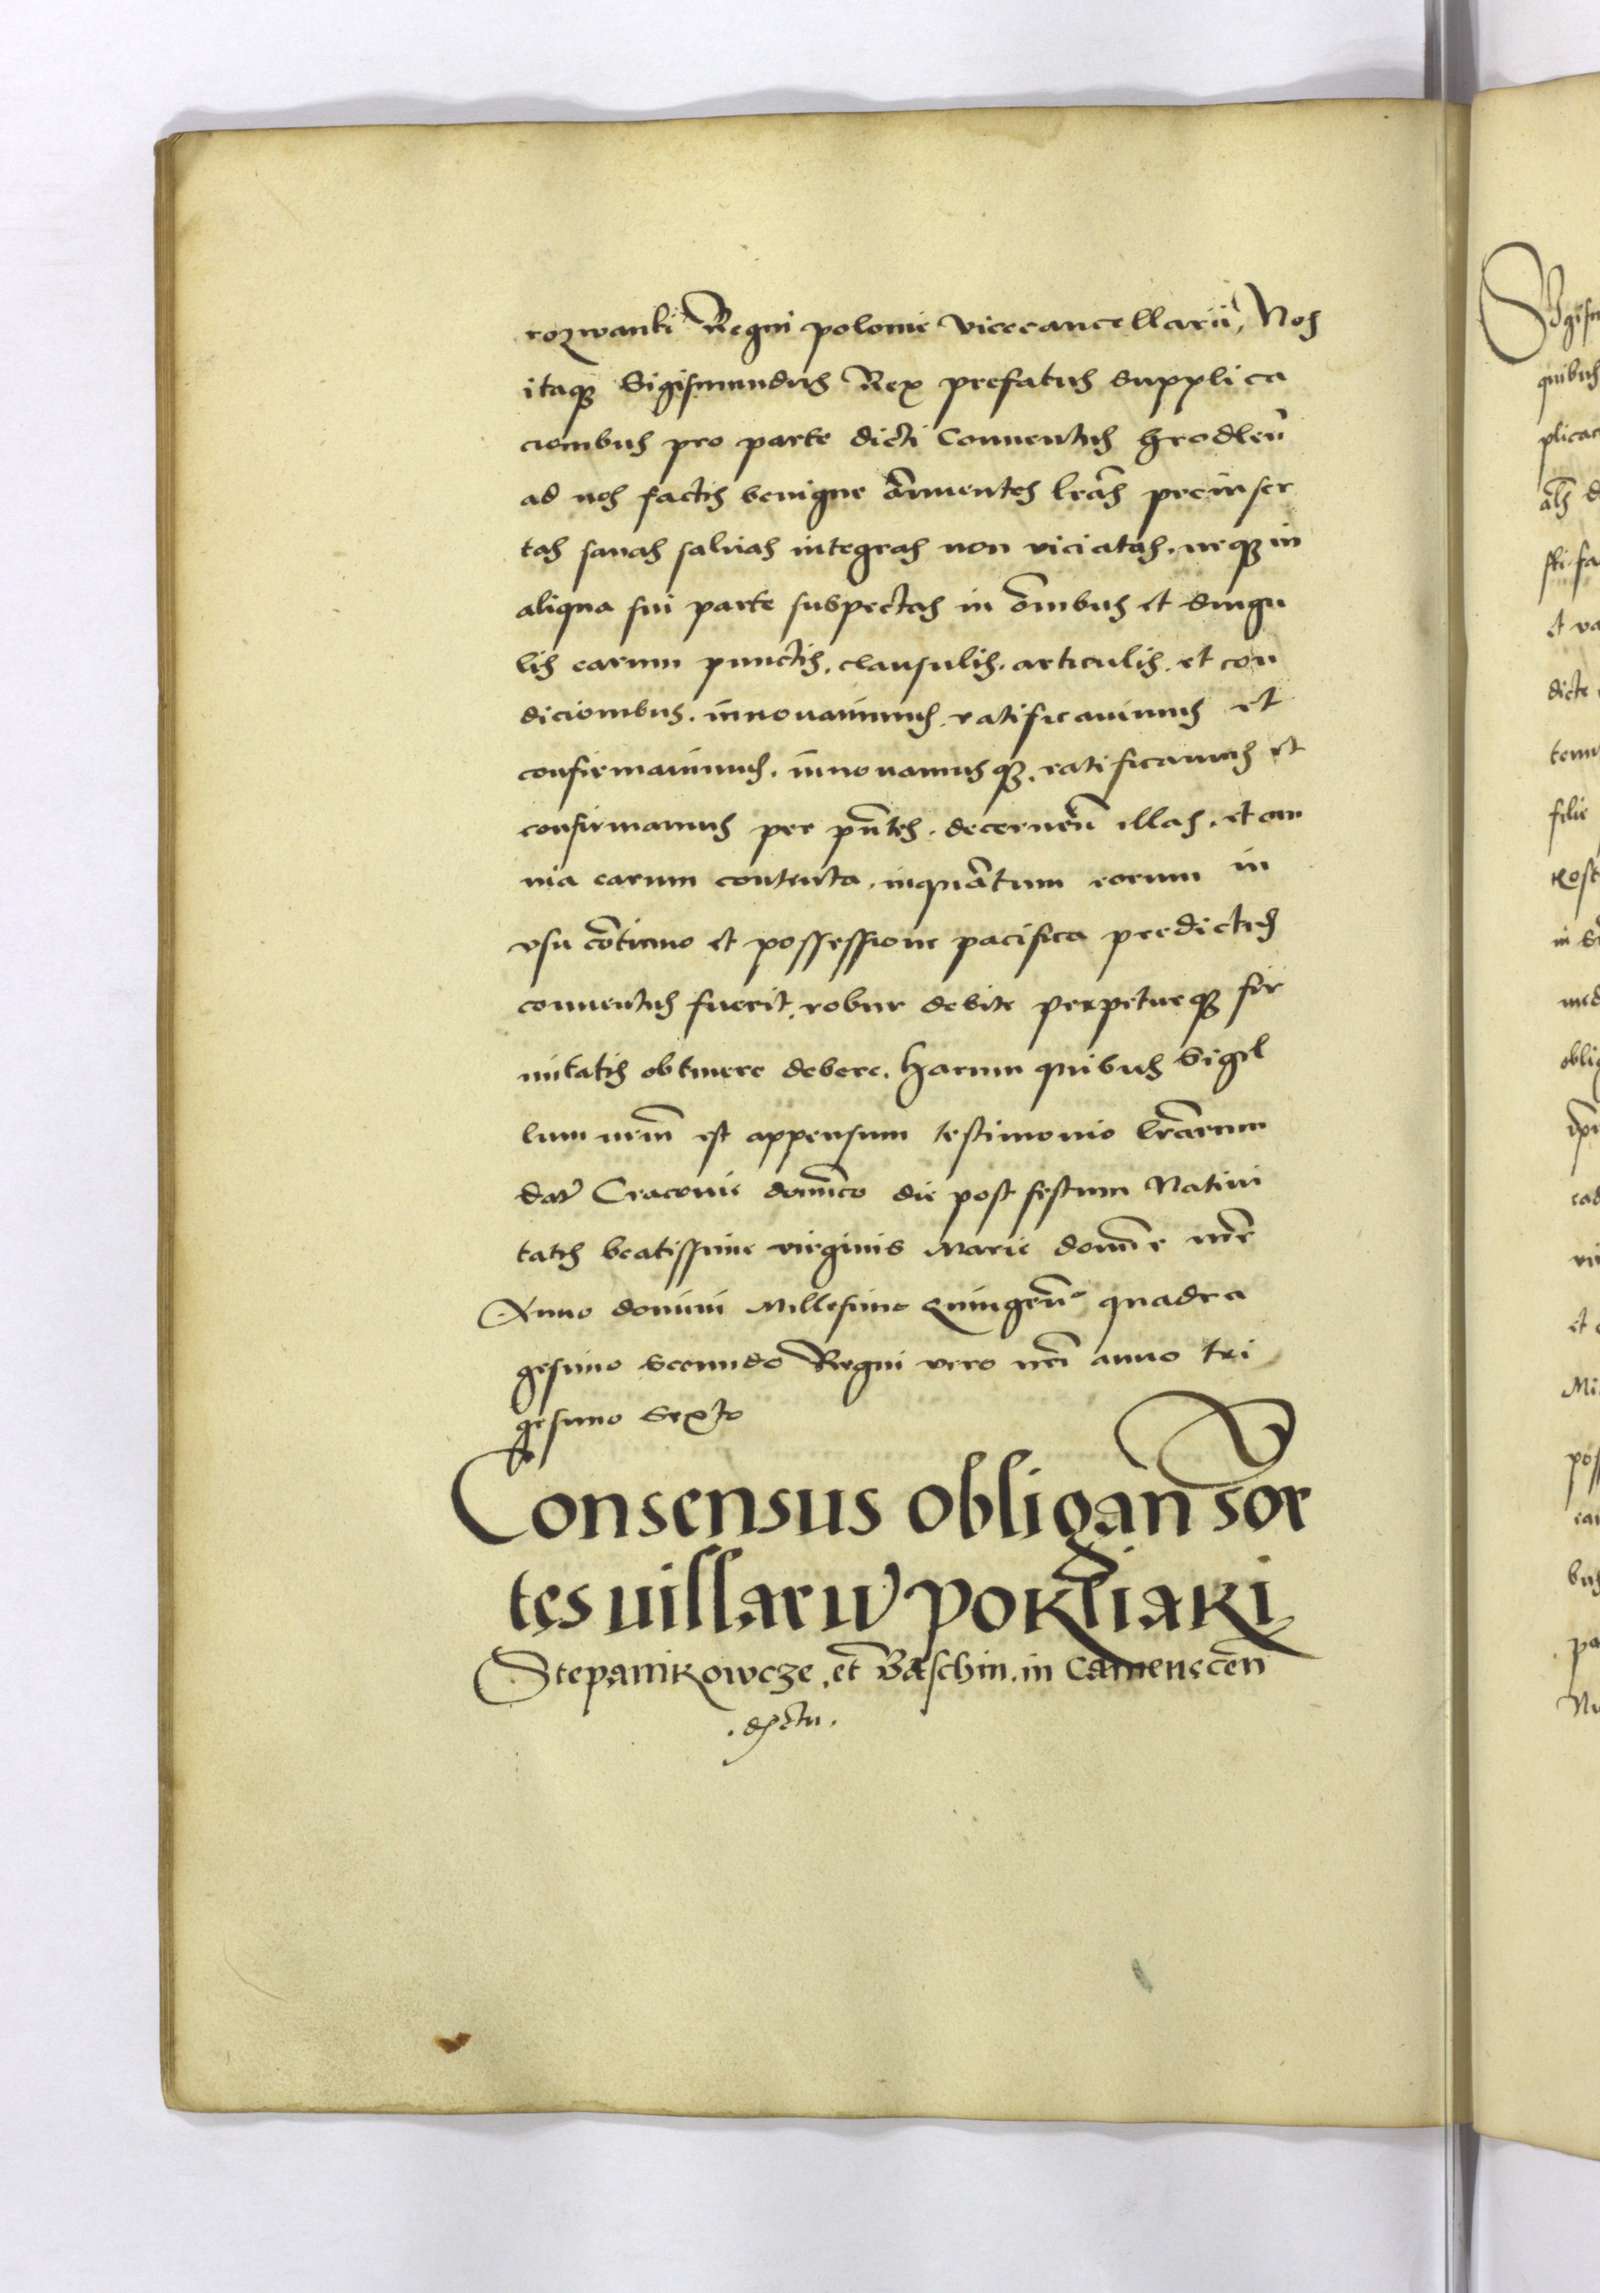 rozwanki Regni polonie Vicecancellarii, Nos
itaque Sigismundus Rex prefatus supplica
cionibus pro parte dicti Conuentus Hrodlen̄
ad nos factis benigne ānnuentes lr̄as preinser
tas sanas saluas integras non viciatas. neque in
aliqua sui parte suspectas in ōmibus et singu
lis earum punctis. clausulis. articulis. et con
dicionibus. innouauimus. ratificauimus et
confirmauimus. innouamusque. ratificamus et
confirmamus per pn̄tes. decernen̄ illas. et om
nia earum contenta. inquātum eorum in
vsu cōtinuo et possessione pacifica predictus
conuentus fuerit. robur debite perpetueque fir
mitatis obtinere debere. Harum quibus Sigil
lum nr̄m est appensum testimonio lr̄arum
dat̄ Cracouie domīco die post festum Natiui
tatis beatissime virginis Marie domīe nr̄e
Anno domini Millesimo quingen̄o quadra
gesimo secundo Regni vero nr̄i anno tri
gesimo sexto
Consensus obligan̄ sor
tes uillarū
Stepanikowcze. et Baschin. in Camenecen̄